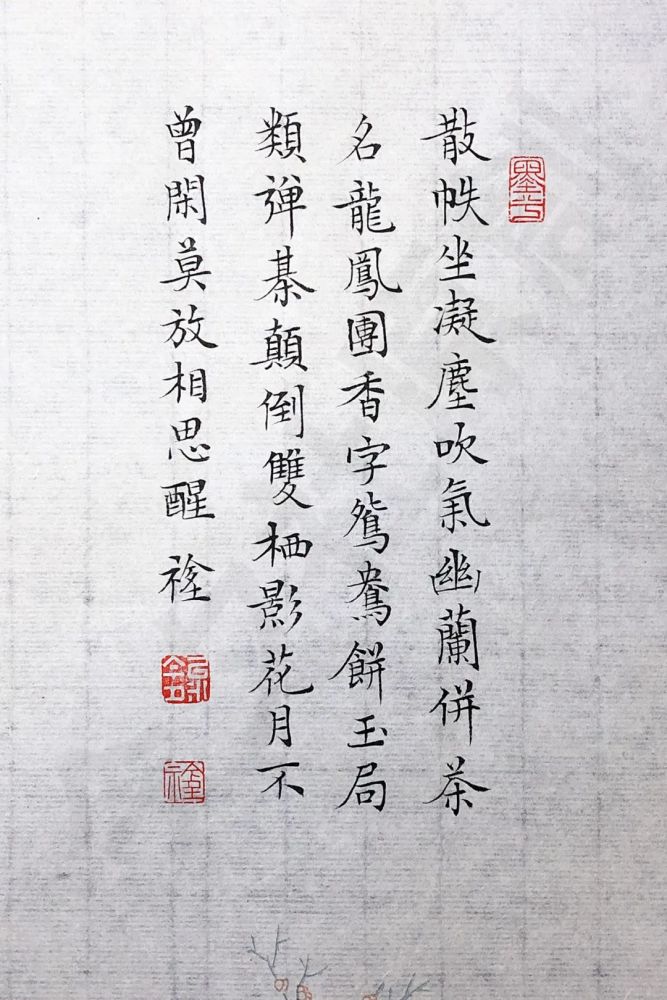 散帙坐凝塵吹氣幽蘭併茶
名龍鳳團香字鴛鴦餅玉局
類彈棊顛倒雙栖影花月不
曾閑莫放相思醒